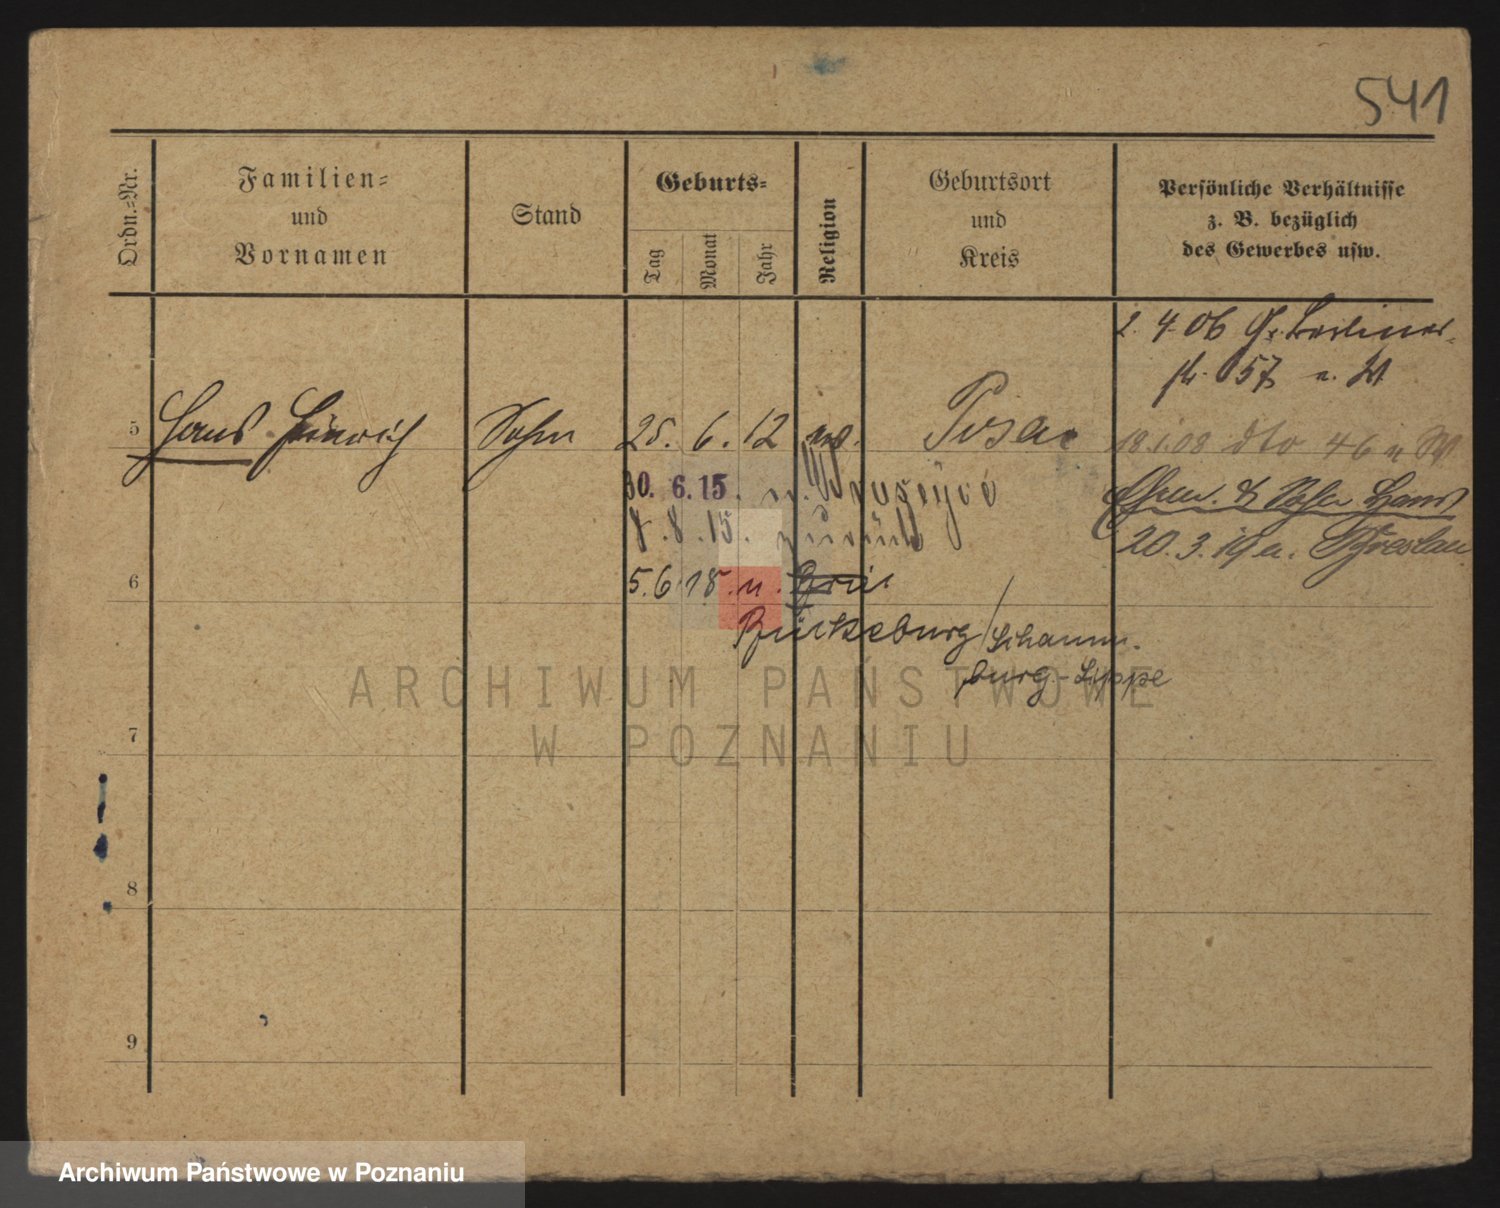 541
Ordn.-Nr.
Familien-
und
Vornamen
Stand
Geburts-
Tag
Monat
Jahr
Religion
Geburtsort
und
Kreis
Persönliche Verhältnisse
z. B. bezüglich
des Gewerbes usw.
2. 4. 06 Gr. Berliner-
str. 57 n. W
5 Hans Heinrich Sohn 25. 6. 12 ev. Posen
18.1.08 dto 46 n W
30. 6. 15. n.
Ehefr. & Sohn Hans
8. 8. 15. zurück
20. 3. 19 n. Breslau
6 5. 6 18. n.
Bückeburg / Schaum-
burg-Lippe
ARCHIWUM PAŃSTWOWE
W POZNANIU
7
8
9
Archiwum Państwowe w Poznaniu